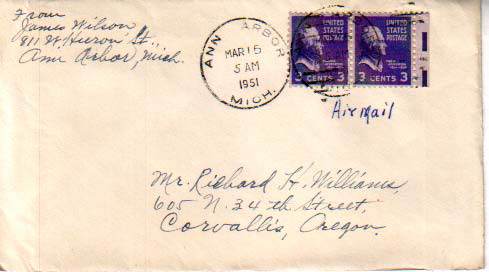 From
James Wilson
811 W. Huron St.
Ann Arbor, Mich.
ANN ARBOR
MAR 15
5 AM
1951
MICH.
UNITED
STATES
POSTAGE
3 CENTS 3
UNITED
STATES
POSTAGE
3 CENTS 3
Airmail
Mr. Richard H. Williams,
605 N. 34th Street,
Corvallis, Oregon.